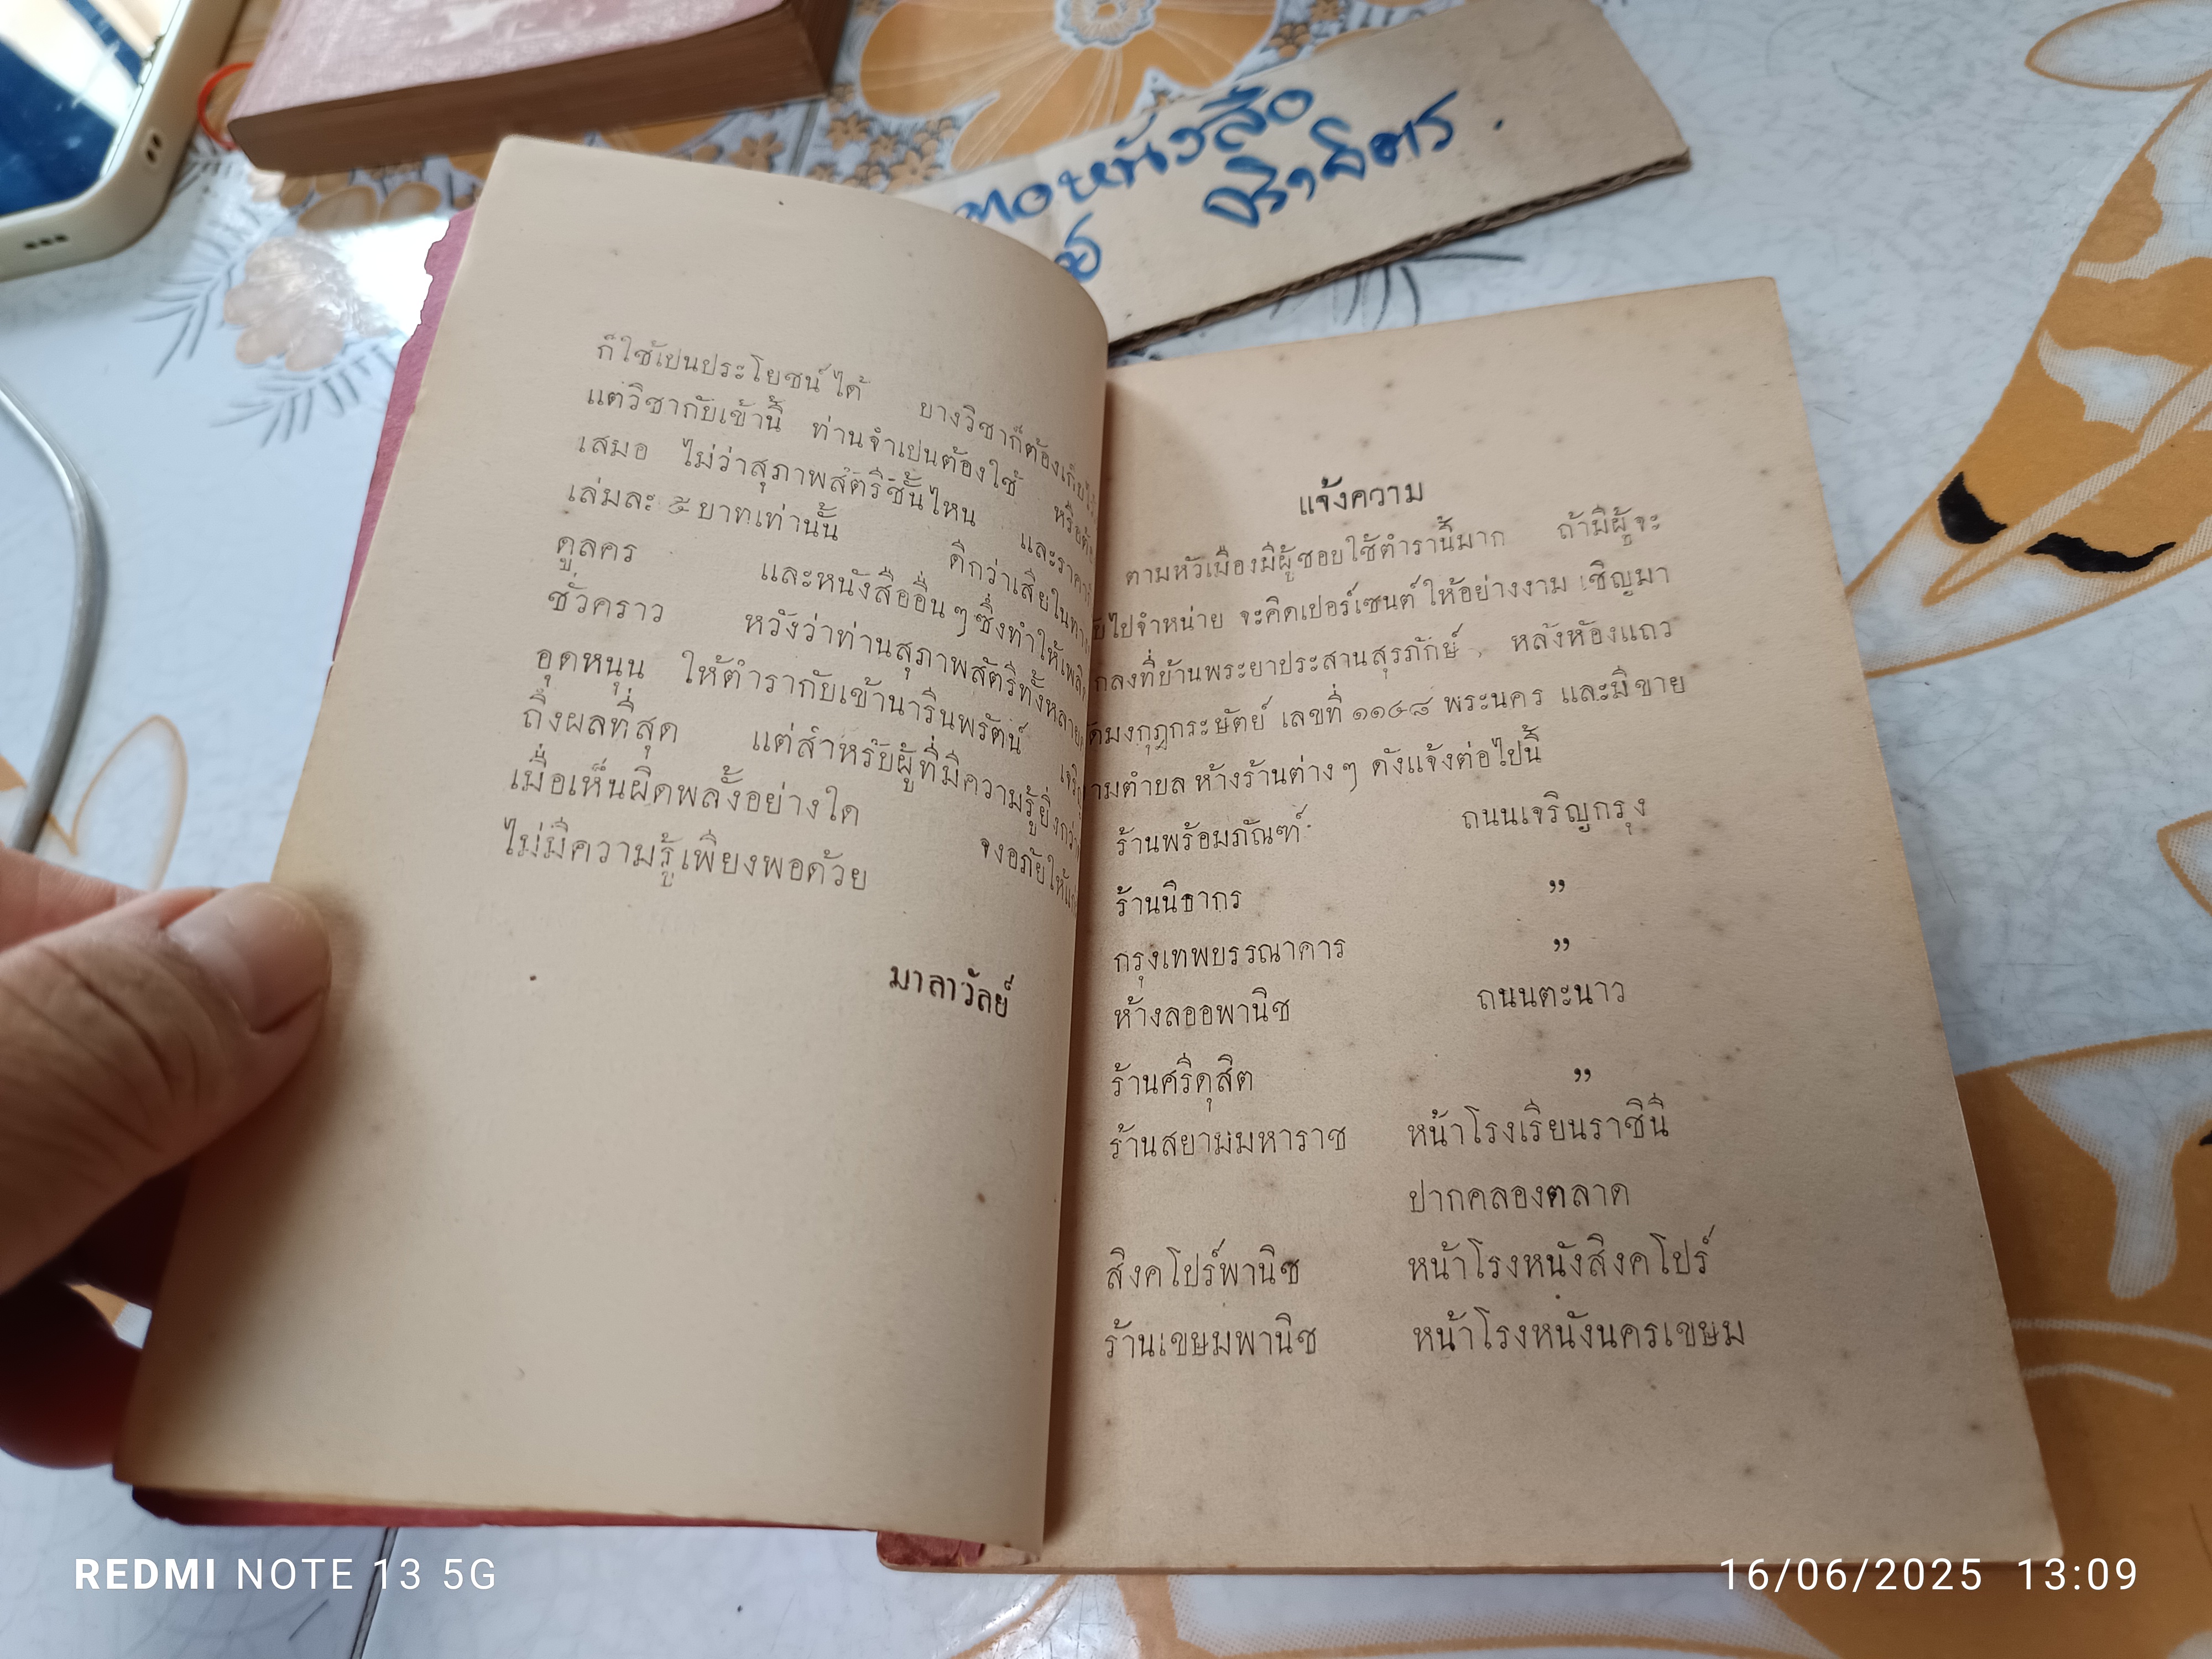 ก็ใช้เปนประโยชน์ได้ บางวิชาก็ต้องเก็บไว้
แต่วิชากับเข้านี้ ท่านจำเปนต้องใช้
เสมอ ไม่ว่าสุภาพสัตรีชั้นไหน และราคา
เล่มละ ๕ บาทเท่านั้น ดีกว่าเสียในทาง
ดูลคร และหนังสืออื่น ๆ ซึ่งทำให้เพลิน
ชั่วคราว หวังว่าท่านสุภาพสัตรีทั้งหลาย
อุดหนุน ให้ตำรากับเข้านารีนพรัตน์ เจริญ
ถึงผลที่สุด แต่สำหรับผู้ที่มีความรู้ยิ่งกว่า
เมื่อเห็นผิดพลั้งอย่างใด จงอภัยให้แก่
ไม่มีความรู้เพียงพอด้วย
มาลาวัลย์
แจ้งความ
ตามหัวเมืองมีผู้ชอบใช้ตำรานี้มาก ถ้ามีผู้จะ
รับไปจำหน่าย จะคิดเปอร์เซนต์ให้อย่างงาม เชิญมา
ตกลงที่บ้านพระยาประสานสุรภักย์ หลังห้องแถว
วัดมงกุฎกระษัตย์ เลขที่ ๑๑๔๘ พระนคร และมีขาย
ตามตำบล ห้างร้านต่าง ๆ ดังแจ้งต่อไปนี้
ร้านพร้อมภัณฑ์ ถนนเจริญกรุง
ร้านนิธากร ”
กรุงเทพบรรณาคาร ”
ห้างลออพานิช ถนนตะนาว
ร้านศรีดุสิต ”
ร้านสยามมหาราช หน้าโรงเรียนราชินี
ปากคลองตลาด
สิงคโปร์พานิช หน้าโรงหนังสิงคโปร์
ร้านเขษมพานิช หน้าโรงหนังนครเขษม
REDMI NOTE 13 5G
16/06/2025 13:09